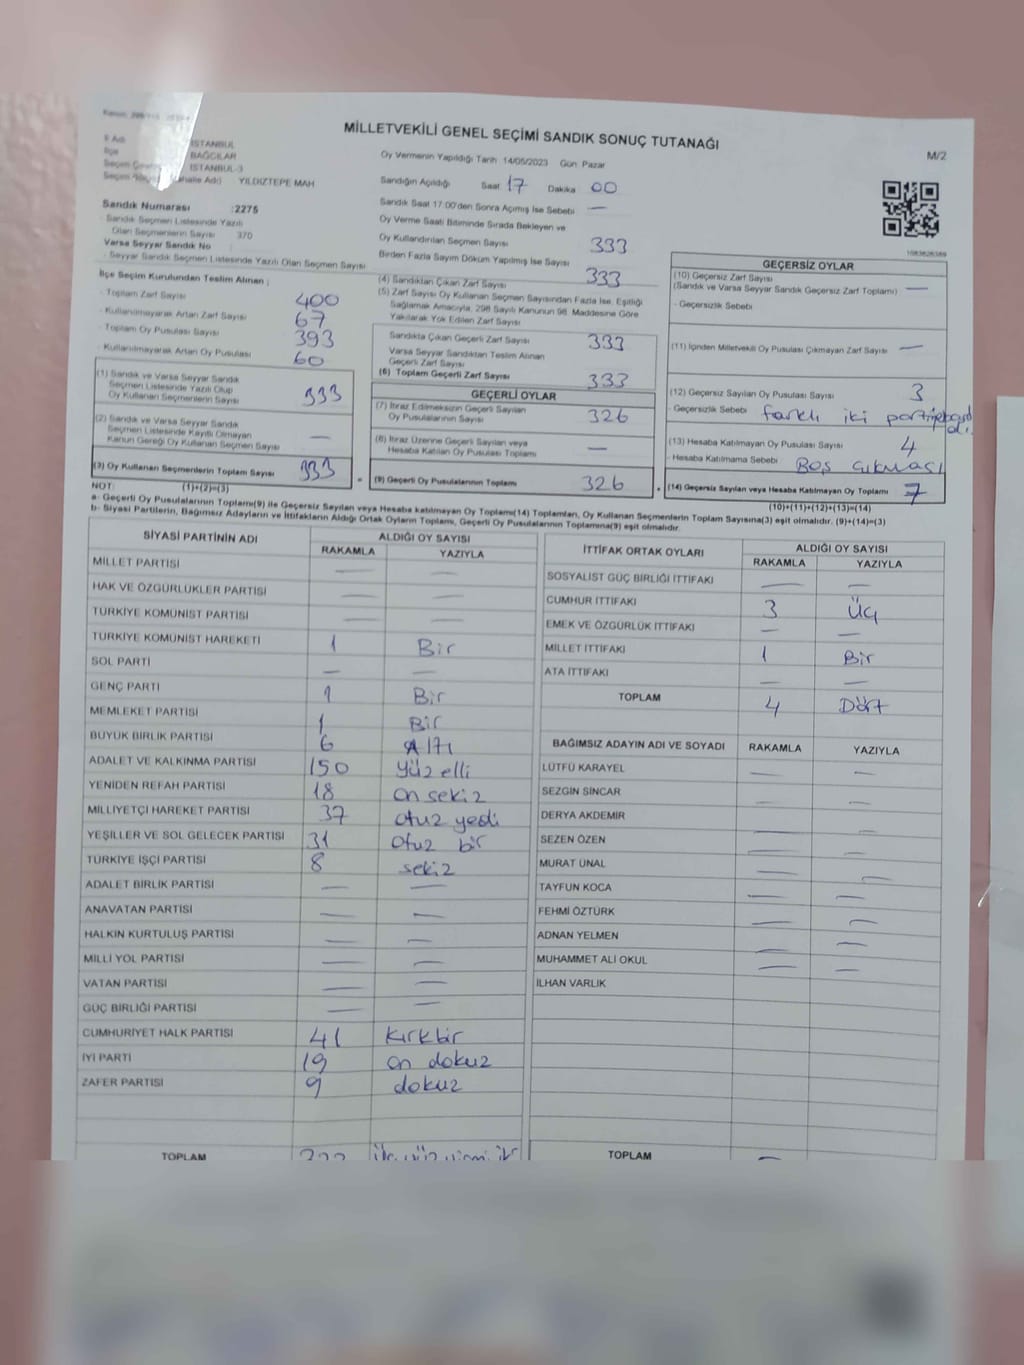 MİLLETVEKİLİ GENEL SEÇİMİ SANDIK SONUÇ TUTANAĞI
M/2
İl Adı İSTANBUL
İlçe BAĞCILAR
Seçim Çevresi İSTANBUL-3
Mahalle Adı) YILDIZTEPE MAH
Oy Vermenin Yapıldığı Tarih 14/05/2023 Gün: Pazar
Sandığın Açıldığı Saat 17 Dakika 00
Sandık Saat 17:00'den Sonra Açılmış İse Sebebi —
Oy Verme Saati Bitiminde Sırada Bekleyen ve
Oy Kullandırılan Seçmen Sayısı 333
Birden Fazla Sayım Döküm Yapılmış İse Sayısı
Sandık Numarası :2275
- Sandık Seçmen Listesinde Yazılı
Olan Seçmenlerin Sayısı 370
Varsa Seyyar Sandık No :
- Seyyar Sandık Seçmen Listesinde Yazılı Olan Seçmen Sayısı
İlçe Seçim Kurulundan Teslim Alınan ;
- Toplam Zarf Sayısı 400
- Kullanılmayarak Artan Zarf Sayısı 67
- Toplam Oy Pusulası Sayısı 393
- Kullanılmayarak Artan Oy Pusulası 60
(1) Sandık ve Varsa Seyyar Sandık
Seçmen Listesinde Yazılı Olup
Oy Kullanan Seçmenlerin Sayısı 333
(2) Sandık ve Varsa Seyyar Sandık
Seçmen Listesinde Kayıtlı Olmayan
Kanun Gereği Oy Kullanan Seçmen Sayısı —
(3) Oy Kullanan Seçmenlerin Toplam Sayısı 333
(4) Sandıktan Çıkan Zarf Sayısı 333
(5) Zarf Sayısı Oy Kullanan Seçmen Sayısından Fazla İse, Eşitliği
Sağlamak Amacıyla, 298 Sayılı Kanunun 98. Maddesine Göre
Yakılarak Yok Edilen Zarf Sayısı
Sandıkta Çıkan Geçerli Zarf Sayısı 333
Varsa Seyyar Sandıktan Teslim Alınan
Geçerli Zarf Sayısı
(6) Toplam Geçerli Zarf Sayısı 333
GEÇERLİ OYLAR
(7) İtiraz Edilmeksizin Geçerli Sayılan
Oy Pusulalarının Sayısı 326
(8) İtiraz Üzerine Geçerli Sayılan veya
Hesaba Katılan Oy Pusulası Toplamı —
(9) Geçerli Oy Pusulalarının Toplamı 326
1083826389
GEÇERSİZ OYLAR
(10) Geçersiz Zarf Sayısı
(Sandık ve Varsa Seyyar Sandık Geçersiz Zarf Toplamı) —
- Geçersizlik Sebebi
(11) İçinden Milletvekili Oy Pusulası Çıkmayan Zarf Sayısı —
(12) Geçersiz Sayılan Oy Pusulası Sayısı 3
- Geçersizlik Sebebi farklı iki partiye
(13) Hesaba Katılmayan Oy Pusulası Sayısı 4
- Hesaba Katılmama Sebebi Boş çıkması
(14) Geçersiz Sayılan veya Hesaba Katılmayan Oy Toplamı 7
NOT: (1)+(2)=(3)
(10)+(11)+(12)+(13)=(14)
a- Geçerli Oy Pusulalarının Toplamı(9) ile Geçersiz Sayılan veya Hesaba Katılmayan Oy Toplamı(14) Toplamları, Oy Kullanan Seçmenlerin Toplam Sayısına(3) eşit olmalıdır. (9)+(14)=(3)
b- Siyasi Partilerin, Bağımsız Adayların ve İttifakların Aldığı Ortak Oyların Toplamı, Geçerli Oy Pusulalarının Toplamına(9) eşit olmalıdır.
SİYASİ PARTİNİN ADI ALDIĞI OY SAYISI
RAKAMLA YAZIYLA
MİLLET PARTİSİ — —
HAK VE ÖZGÜRLÜKLER PARTİSİ — —
TÜRKİYE KOMÜNİST PARTİSİ — —
TÜRKİYE KOMÜNİST HAREKETİ 1 Bir
SOL PARTİ — —
GENÇ PARTİ 1 Bir
MEMLEKET PARTİSİ 1 Bir
BÜYÜK BİRLİK PARTİSİ 6 Altı
ADALET VE KALKINMA PARTİSİ 150 yüz elli
YENİDEN REFAH PARTİSİ 18 on sekiz
MİLLİYETÇİ HAREKET PARTİSİ 37 otuz yedi
YEŞİLLER VE SOL GELECEK PARTİSİ 31 otuz bir
TÜRKİYE İŞÇİ PARTİSİ 8 sekiz
ADALET BİRLİK PARTİSİ — —
ANAVATAN PARTİSİ — —
HALKIN KURTULUŞ PARTİSİ — —
MİLLİ YOL PARTİSİ — —
VATAN PARTİSİ — —
GÜÇ BİRLİĞİ PARTİSİ — —
CUMHURİYET HALK PARTİSİ 41 kırkbir
İYİ PARTİ 19 on dokuz
ZAFER PARTİSİ 9 dokuz
TOPLAM
İTTİFAK ORTAK OYLARI ALDIĞI OY SAYISI
RAKAMLA YAZIYLA
SOSYALİST GÜÇ BİRLİĞİ İTTİFAKI — —
CUMHUR İTTİFAKI 3 Üç
EMEK VE ÖZGÜRLÜK İTTİFAKI — —
MİLLET İTTİFAKI 1 Bir
ATA İTTİFAKI — —
TOPLAM 4 Dört
BAĞIMSIZ ADAYIN ADI VE SOYADI RAKAMLA YAZIYLA
LÜTFÜ KARAYEL — —
SEZGİN SİNCAR — —
DERYA AKDEMİR — —
SEZEN ÖZEN — —
MURAT ÜNAL — —
TAYFUN KOCA — —
FEHMİ ÖZTÜRK — —
ADNAN YELMEN — —
MUHAMMET ALİ OKUL — —
İLHAN VARLIK
TOPLAM —